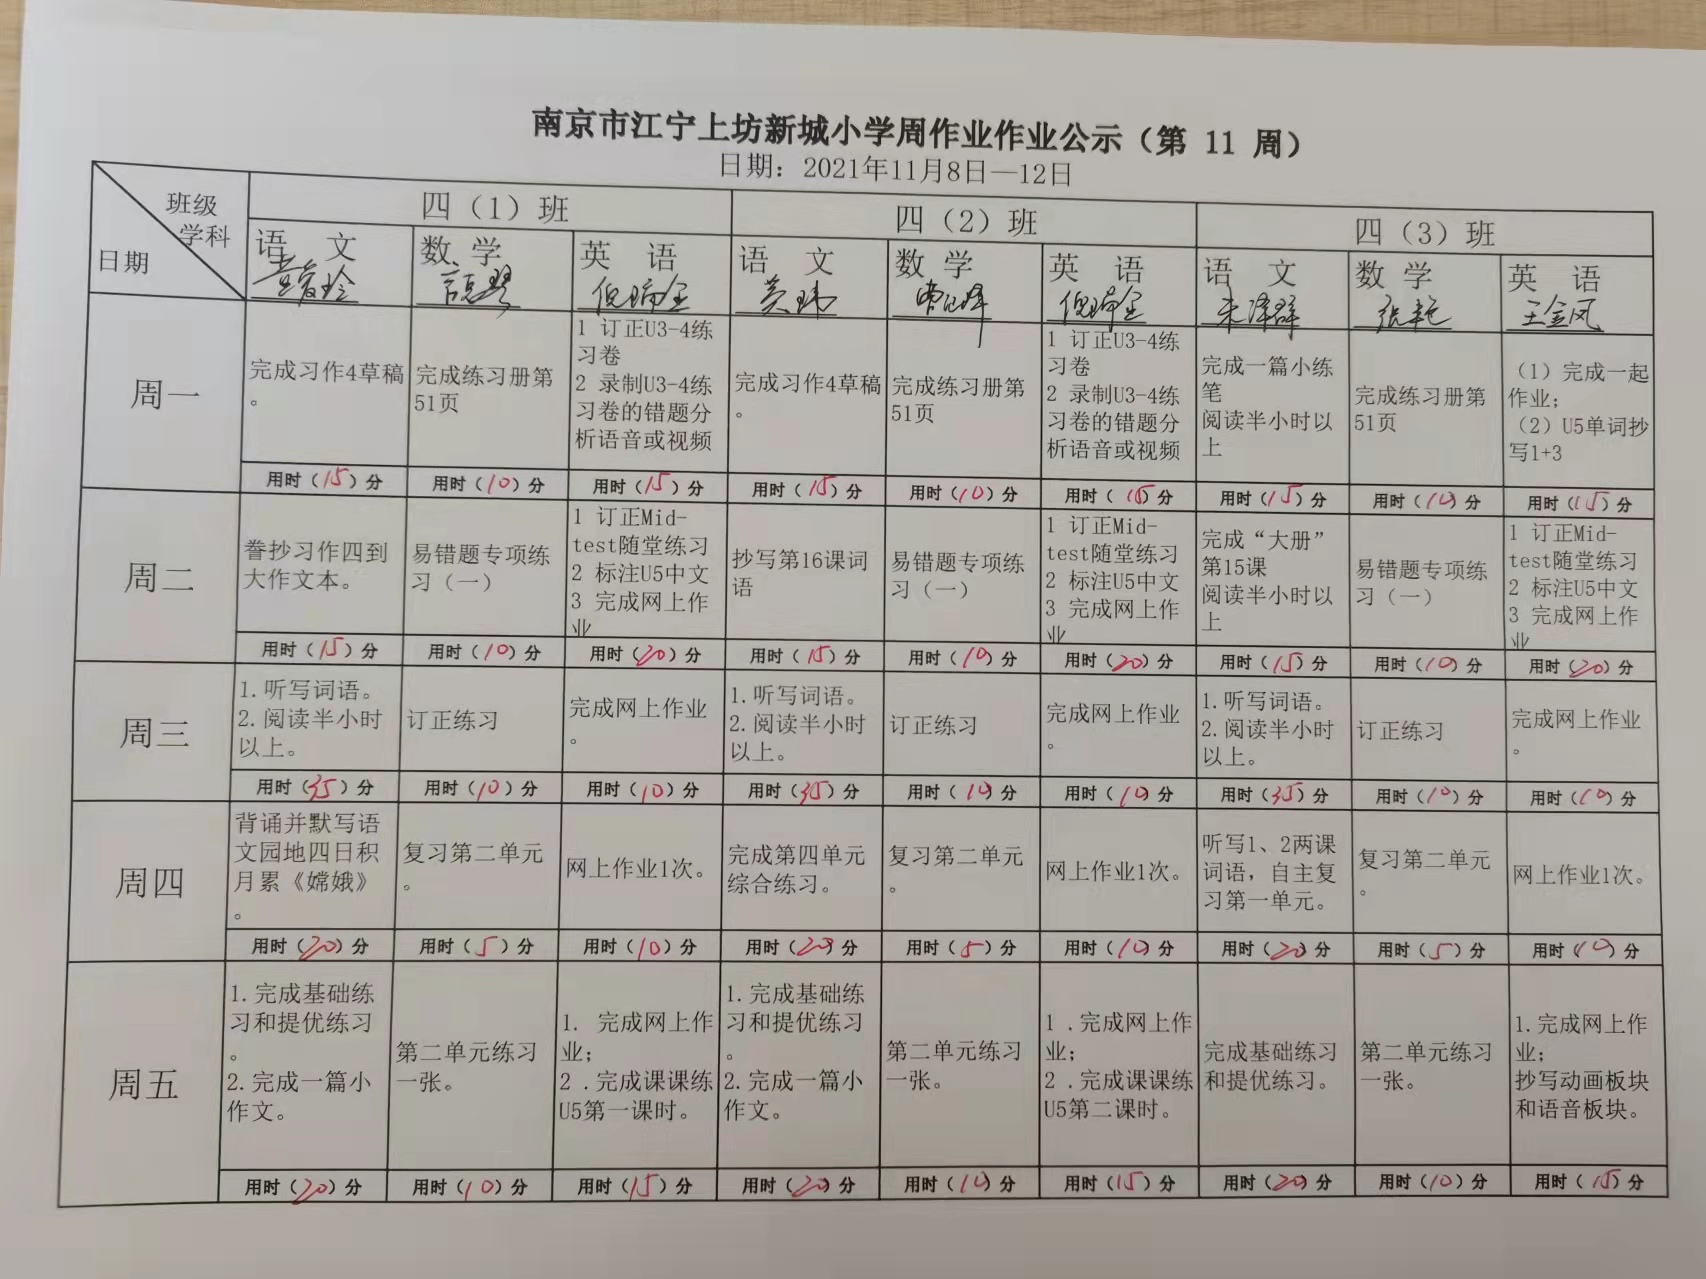 南京市江宁上坊新城小学周作业作业公示（第 11 周）
日期：2021年11月8日—12日
班级
学科
日期
四（1）班
四（2）班
四（3）班
语 文
数 学
英 语
语 文
黄玮
数 学
英 语
语 文
朱泽群
数 学
张艳
英 语
王金凤
周一
完成习作4草稿
。
完成练习册第
51页
1 订正U3-4练
习卷
2 录制U3-4练
习卷的错题分
析语音或视频
完成习作4草稿
。
完成练习册第
51页
1 订正U3-4练
习卷
2 录制U3-4练
习卷的错题分
析语音或视频
完成一篇小练
笔
阅读半小时以
上
完成练习册第
51页
（1）完成一起
作业；
（2）U5单词抄
写1+3
用时（15）分
用时（10）分
用时（15）分
用时（15）分
用时（10）分
用时（15）分
用时（15）分
用时（10）分
用时（15）分
周二
誊抄习作四到
大作文本。
易错题专项练
习（一）
1 订正Mid-
test随堂练习
2 标注U5中文
3 完成网上作
业
抄写第16课词
语
易错题专项练
习（一）
1 订正Mid-
test随堂练习
2 标注U5中文
3 完成网上作
业
完成“大册”
第15课
阅读半小时以
上
易错题专项练
习（一）
1 订正Mid-
test随堂练习
2 标注U5中文
3 完成网上作
业
用时（15）分
用时（10）分
用时（20）分
用时（15）分
用时（10）分
用时（20）分
用时（15）分
用时（10）分
用时（20）分
周三
1.听写词语。
2.阅读半小时
以上。
订正练习
完成网上作业
。
1.听写词语。
2.阅读半小时
以上。
订正练习
完成网上作业
。
1.听写词语。
2.阅读半小时
以上。
订正练习
完成网上作业
。
用时（35）分
用时（10）分
用时（10）分
用时（35）分
用时（10）分
用时（10）分
用时（35）分
用时（10）分
用时（10）分
周四
背诵并默写语
文园地四日积
月累《嫦娥》
。
复习第二单元
。
网上作业1次。
完成第四单元
综合练习。
复习第二单元
。
网上作业1次。
听写1、2两课
词语，自主复
习第一单元。
复习第二单元
。
网上作业1次。
用时（20）分
用时（5）分
用时（10）分
用时（20）分
用时（5）分
用时（10）分
用时（20）分
用时（5）分
用时（10）分
周五
1.完成基础练
习和提优练习
。
2.完成一篇小
作文。
第二单元练习
一张。
1. 完成网上作
业；
2 .完成课课练
U5第一课时。
1.完成基础练
习和提优练习
。
2.完成一篇小
作文。
第二单元练习
一张。
1 .完成网上作
业；
2 .完成课课练
U5第二课时。
完成基础练习
和提优练习。
第二单元练习
一张。
1.完成网上作
业；
抄写动画板块
和语音板块。
用时（20）分
用时（10）分
用时（15）分
用时（20）分
用时（10）分
用时（15）分
用时（20）分
用时（10）分
用时（15）分